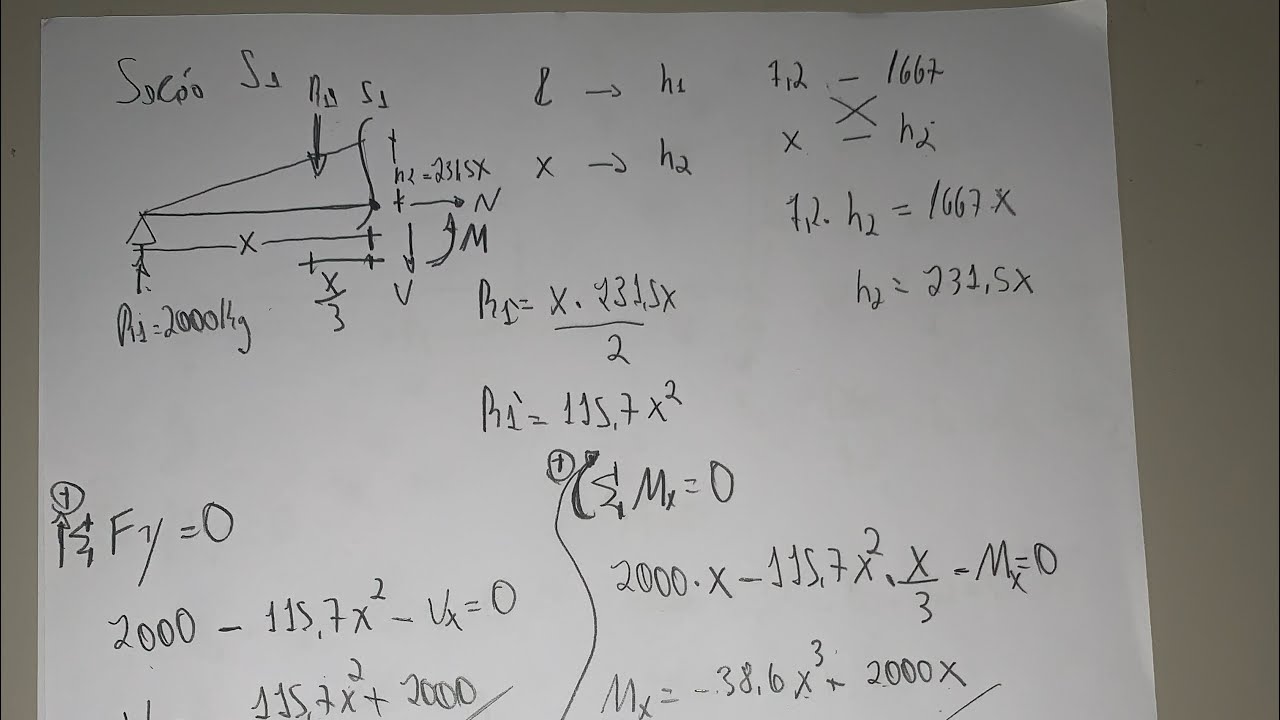 Seção S1
R1 S1
h2 = 231,5X
N
M
V
X
X/3
R1 = 2000Kg
l → h1
x → h2
7,2 – 1667
x – h2
7,2 · h2 = 1667 x
h2 = 231,5x
R1 = x · 231,5x / 2
R1 = 115,7x²
+ ↑ Σ Fy = 0
2000 – 115,7x² – Vx = 0
115,7x² + 2000
+ Σ Mx = 0
2000 · x – 115,7x² · x/3 – Mx = 0
Mx = -38,6x³ + 2000x